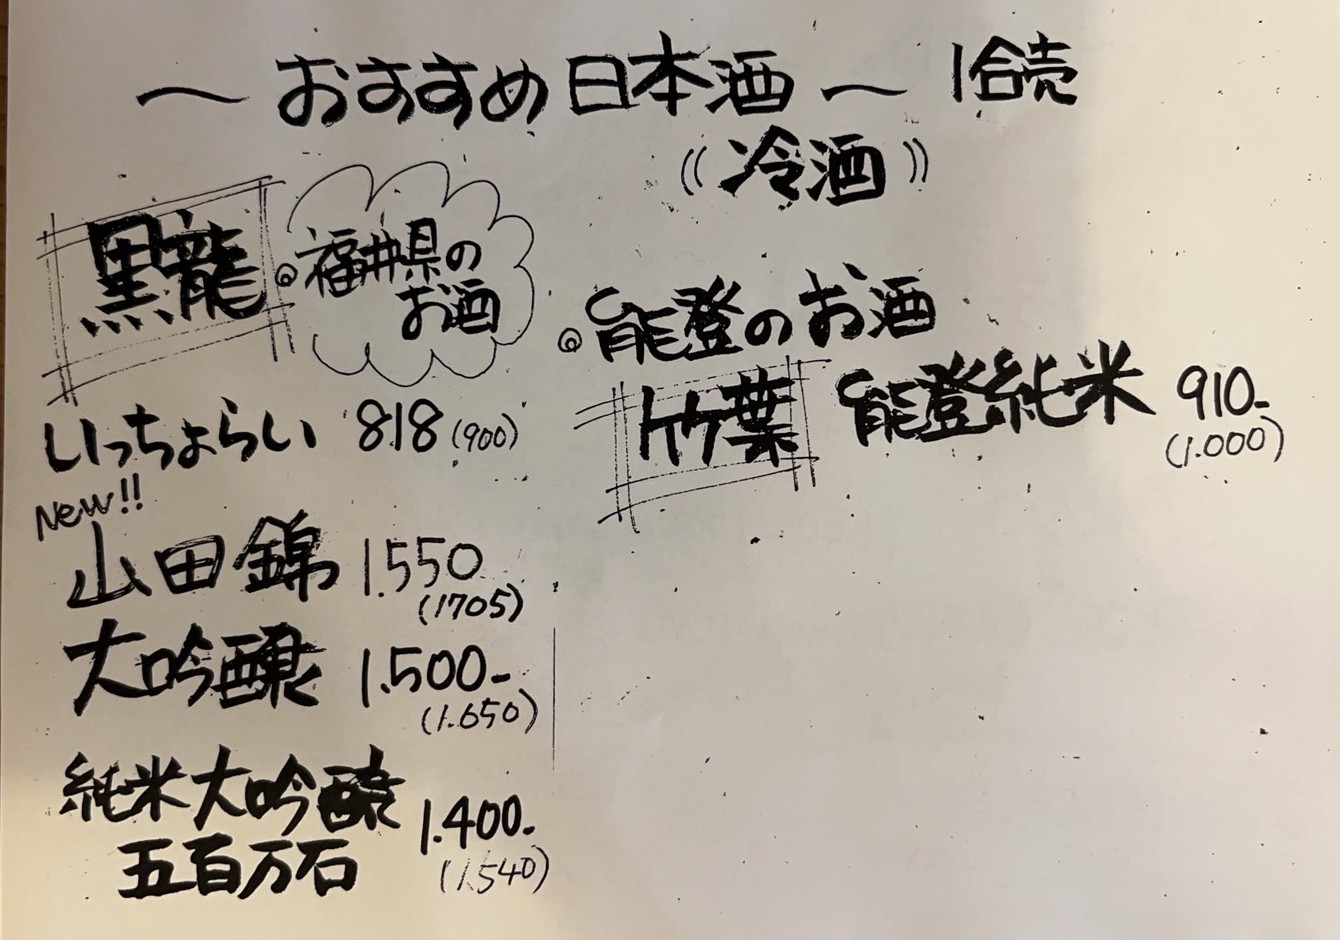 〜おすすめ日本酒〜 1合売
((冷酒))
黒龍
◎福井県の
お酒
いっちょらい 818(900)
New!!
山田錦 1.550
(1705)
大吟醸 1.500-
(1.650)
純米大吟醸
五百万石
1.400-
(1.540)
◎能登のお酒
竹葉 能登純米 910-
(1.000)